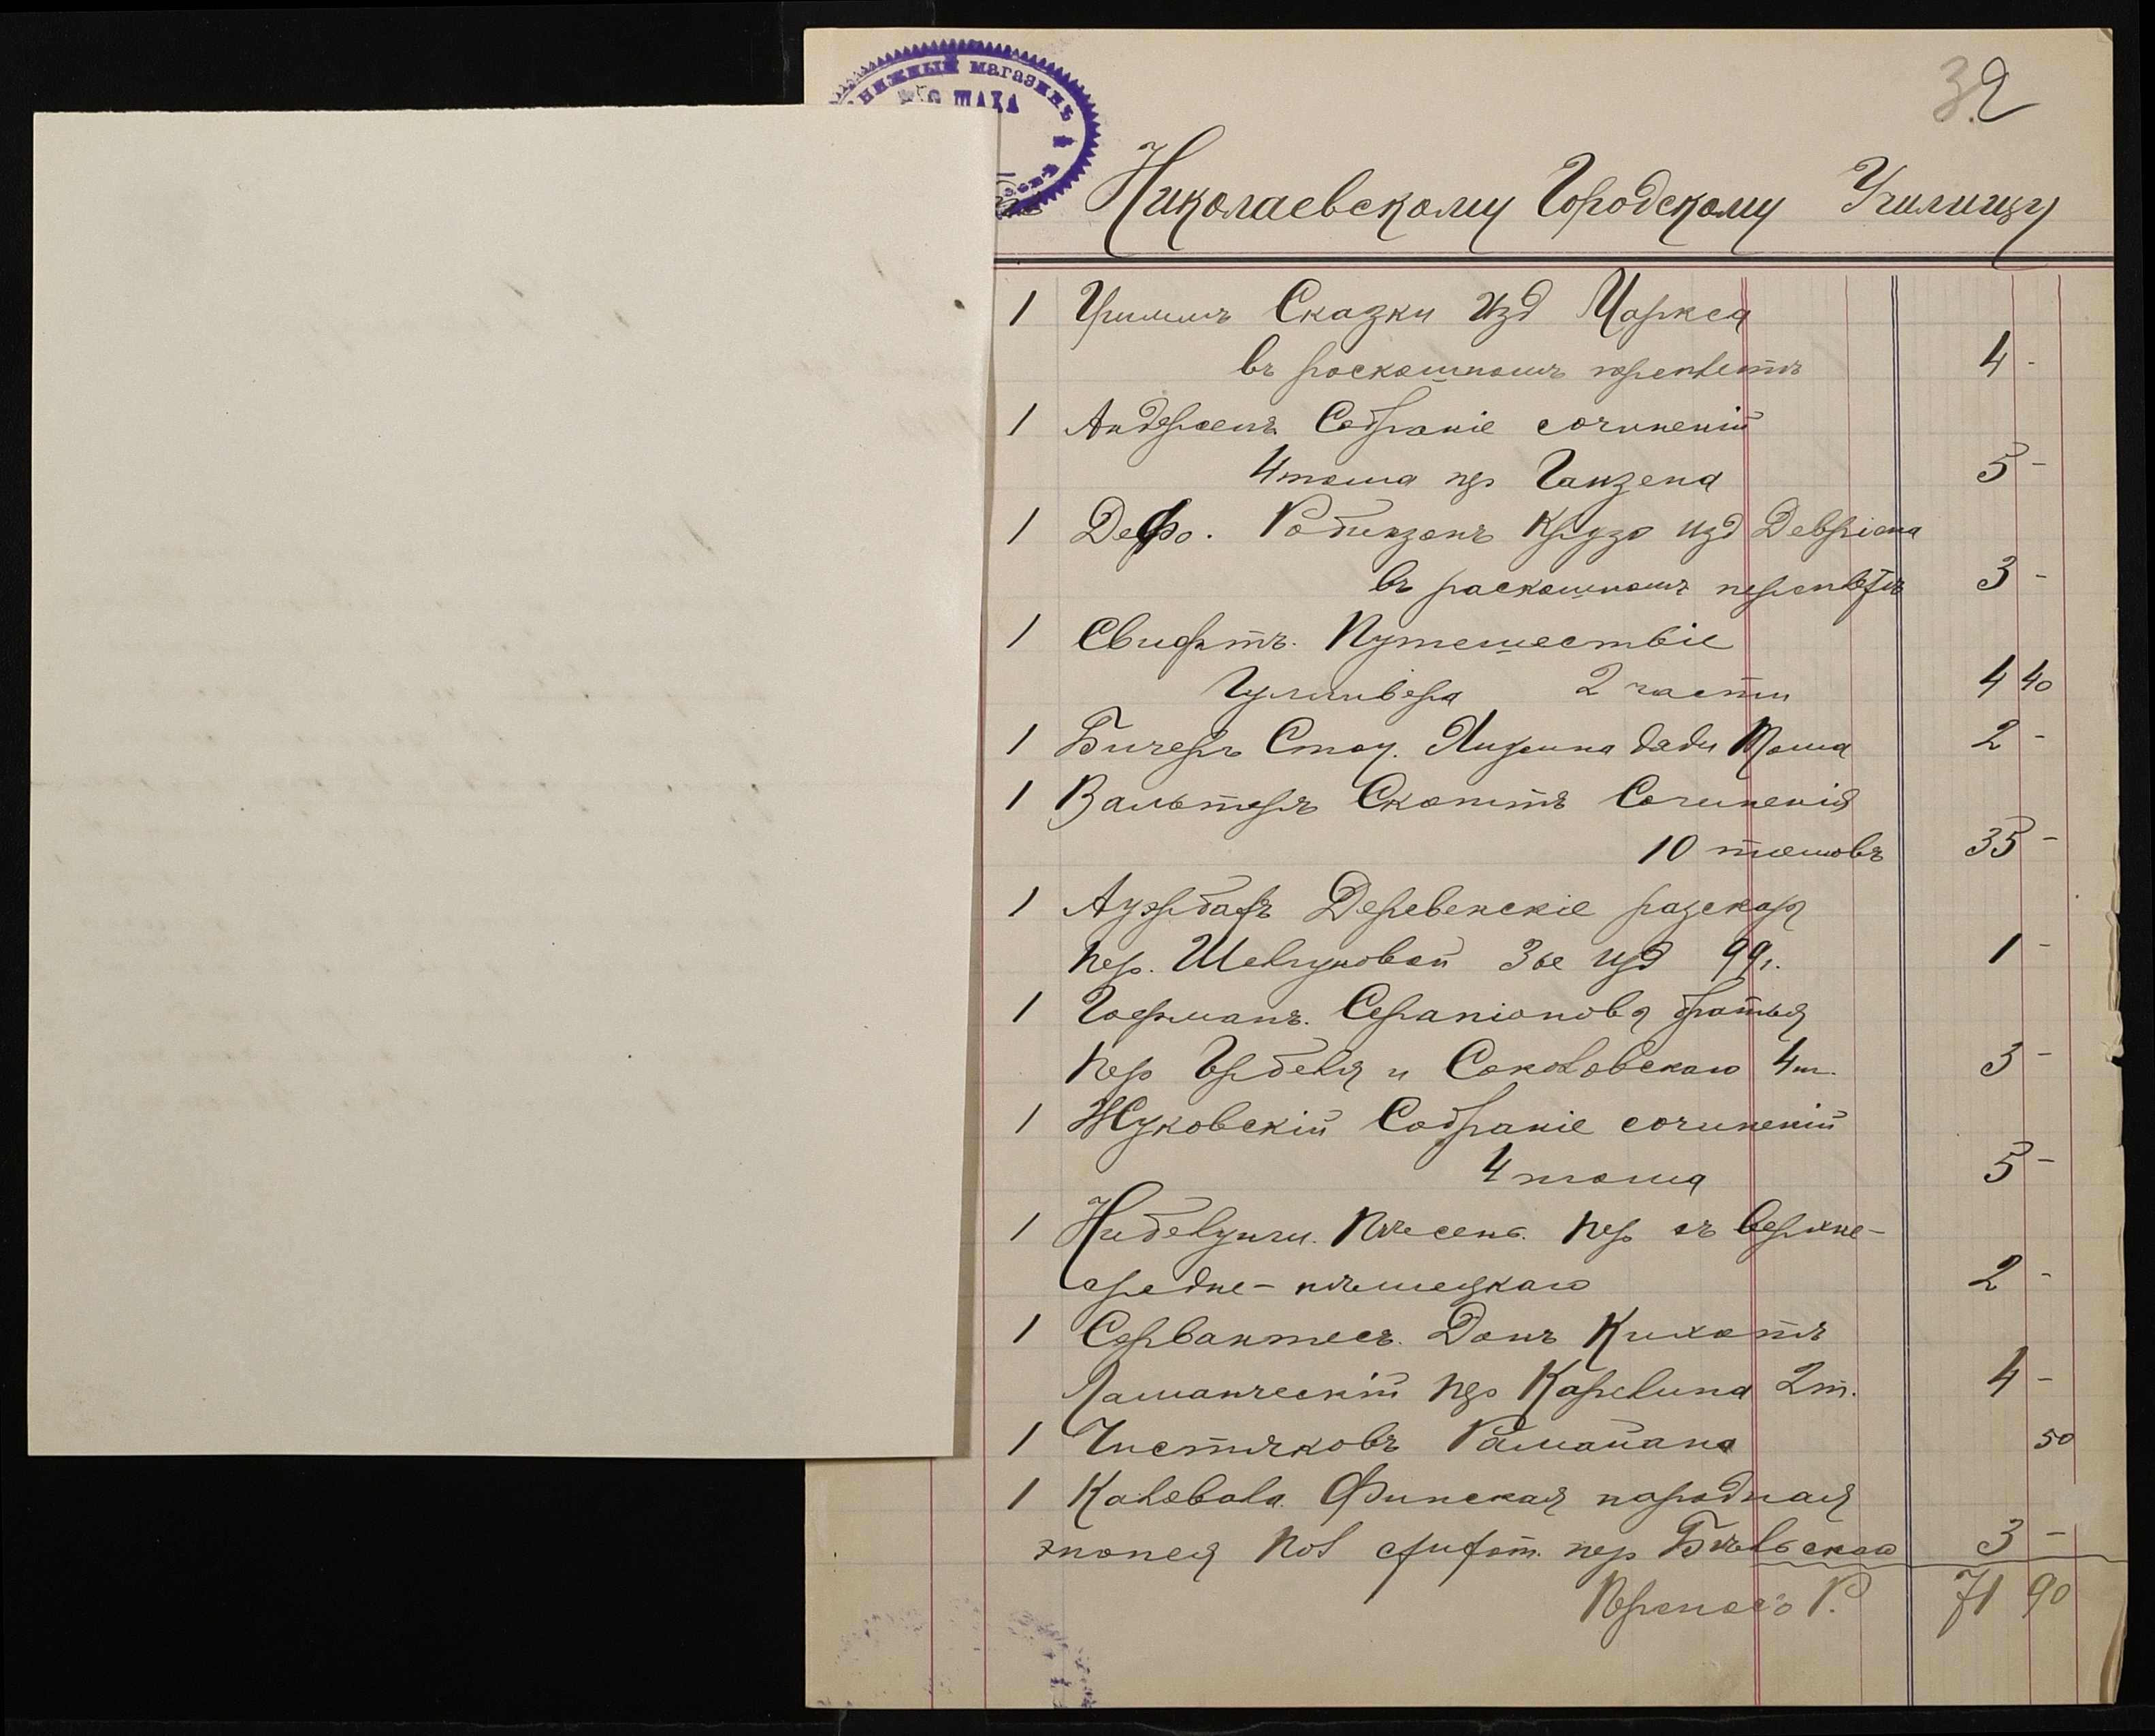 нижный магазинъ
ШАХА
32
Николаевскому Городскому Училищу
1 Гриммъ Сказки Изд Маркса
въ роскошномъ переплетѣ 4 -
1 Андерсенъ Собраніе сочиненій
4 тома пер Ганзена 5 -
1 Дефо. Робинзонъ Крузо изд Девріена
въ раскошномъ переплетѣ 3 -
1 Свифтъ. Путешествіе
Гулливера 2 части 4 40
1 Бичеръ Стоу. Хижина дяди Тома 2 -
1 Вальтеръ Скоттъ Сочиненія
10 томовъ 35 -
1 Ауэрбахъ Деревенскіе разсказ
пер. Шелгуновой 3ье изд 99г. 1 -
1 Гофманъ. Серапіоновы братья
пер Гербеля и Соколовскаго 4 т. 3 -
1 Жуковскій Собраніе сочиненій
4 тома 5 -
1 Нибелунги. Пѣсень. пер съ верхне-
средне-нѣмецкаго 2 -
1 Сервантесъ. Донъ Кихотъ
Ламанческій пер Карелина 2 т. 4 -
1 Чистяковъ Рамайана 50
1 Калевала. Финская народная
эпопея пол стихот. пер Бѣльскаго 3 -
Переносъ Р. 71 90